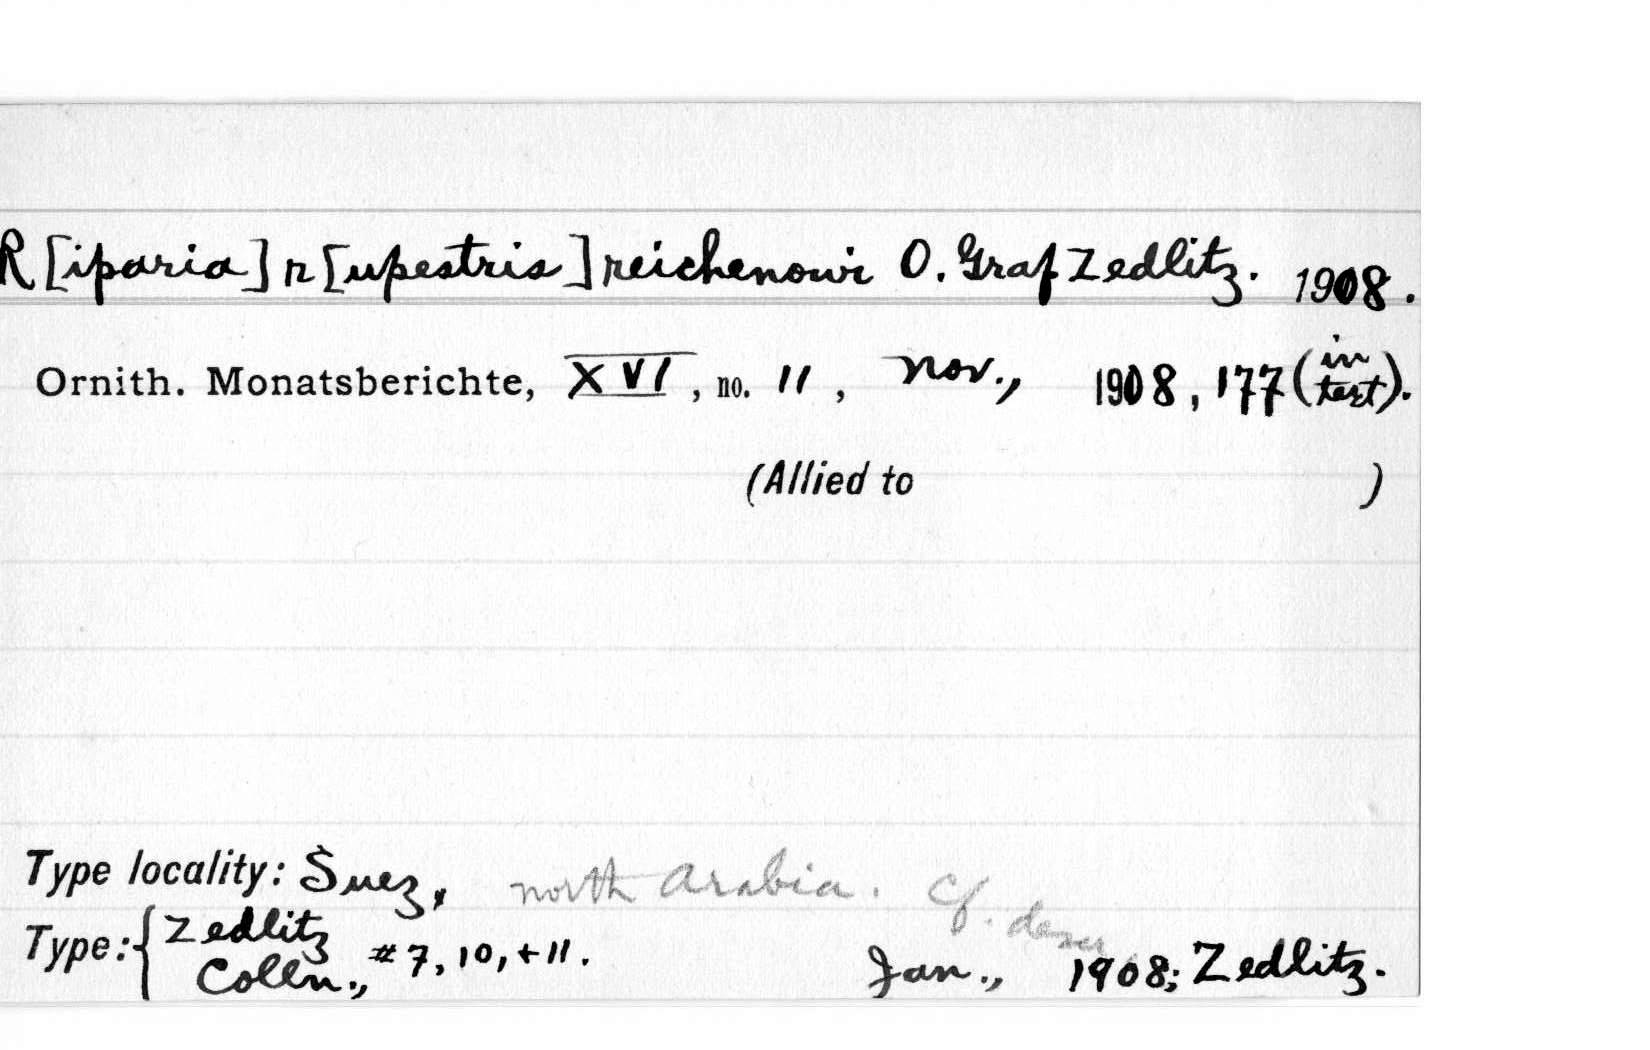 R[iparia] r[upestris] reichenowi O. Graf Zedlitz. 1908.
Ornith. Monatsberichte, XVI, no. 11, Nov., 1908, 177 (in text).
(Allied to )
Type locality: Suez, north Arabia. Cf.
Type: { Zedlitz Colln., #7, 10, + 11. Jan., 1908; Zedlitz.